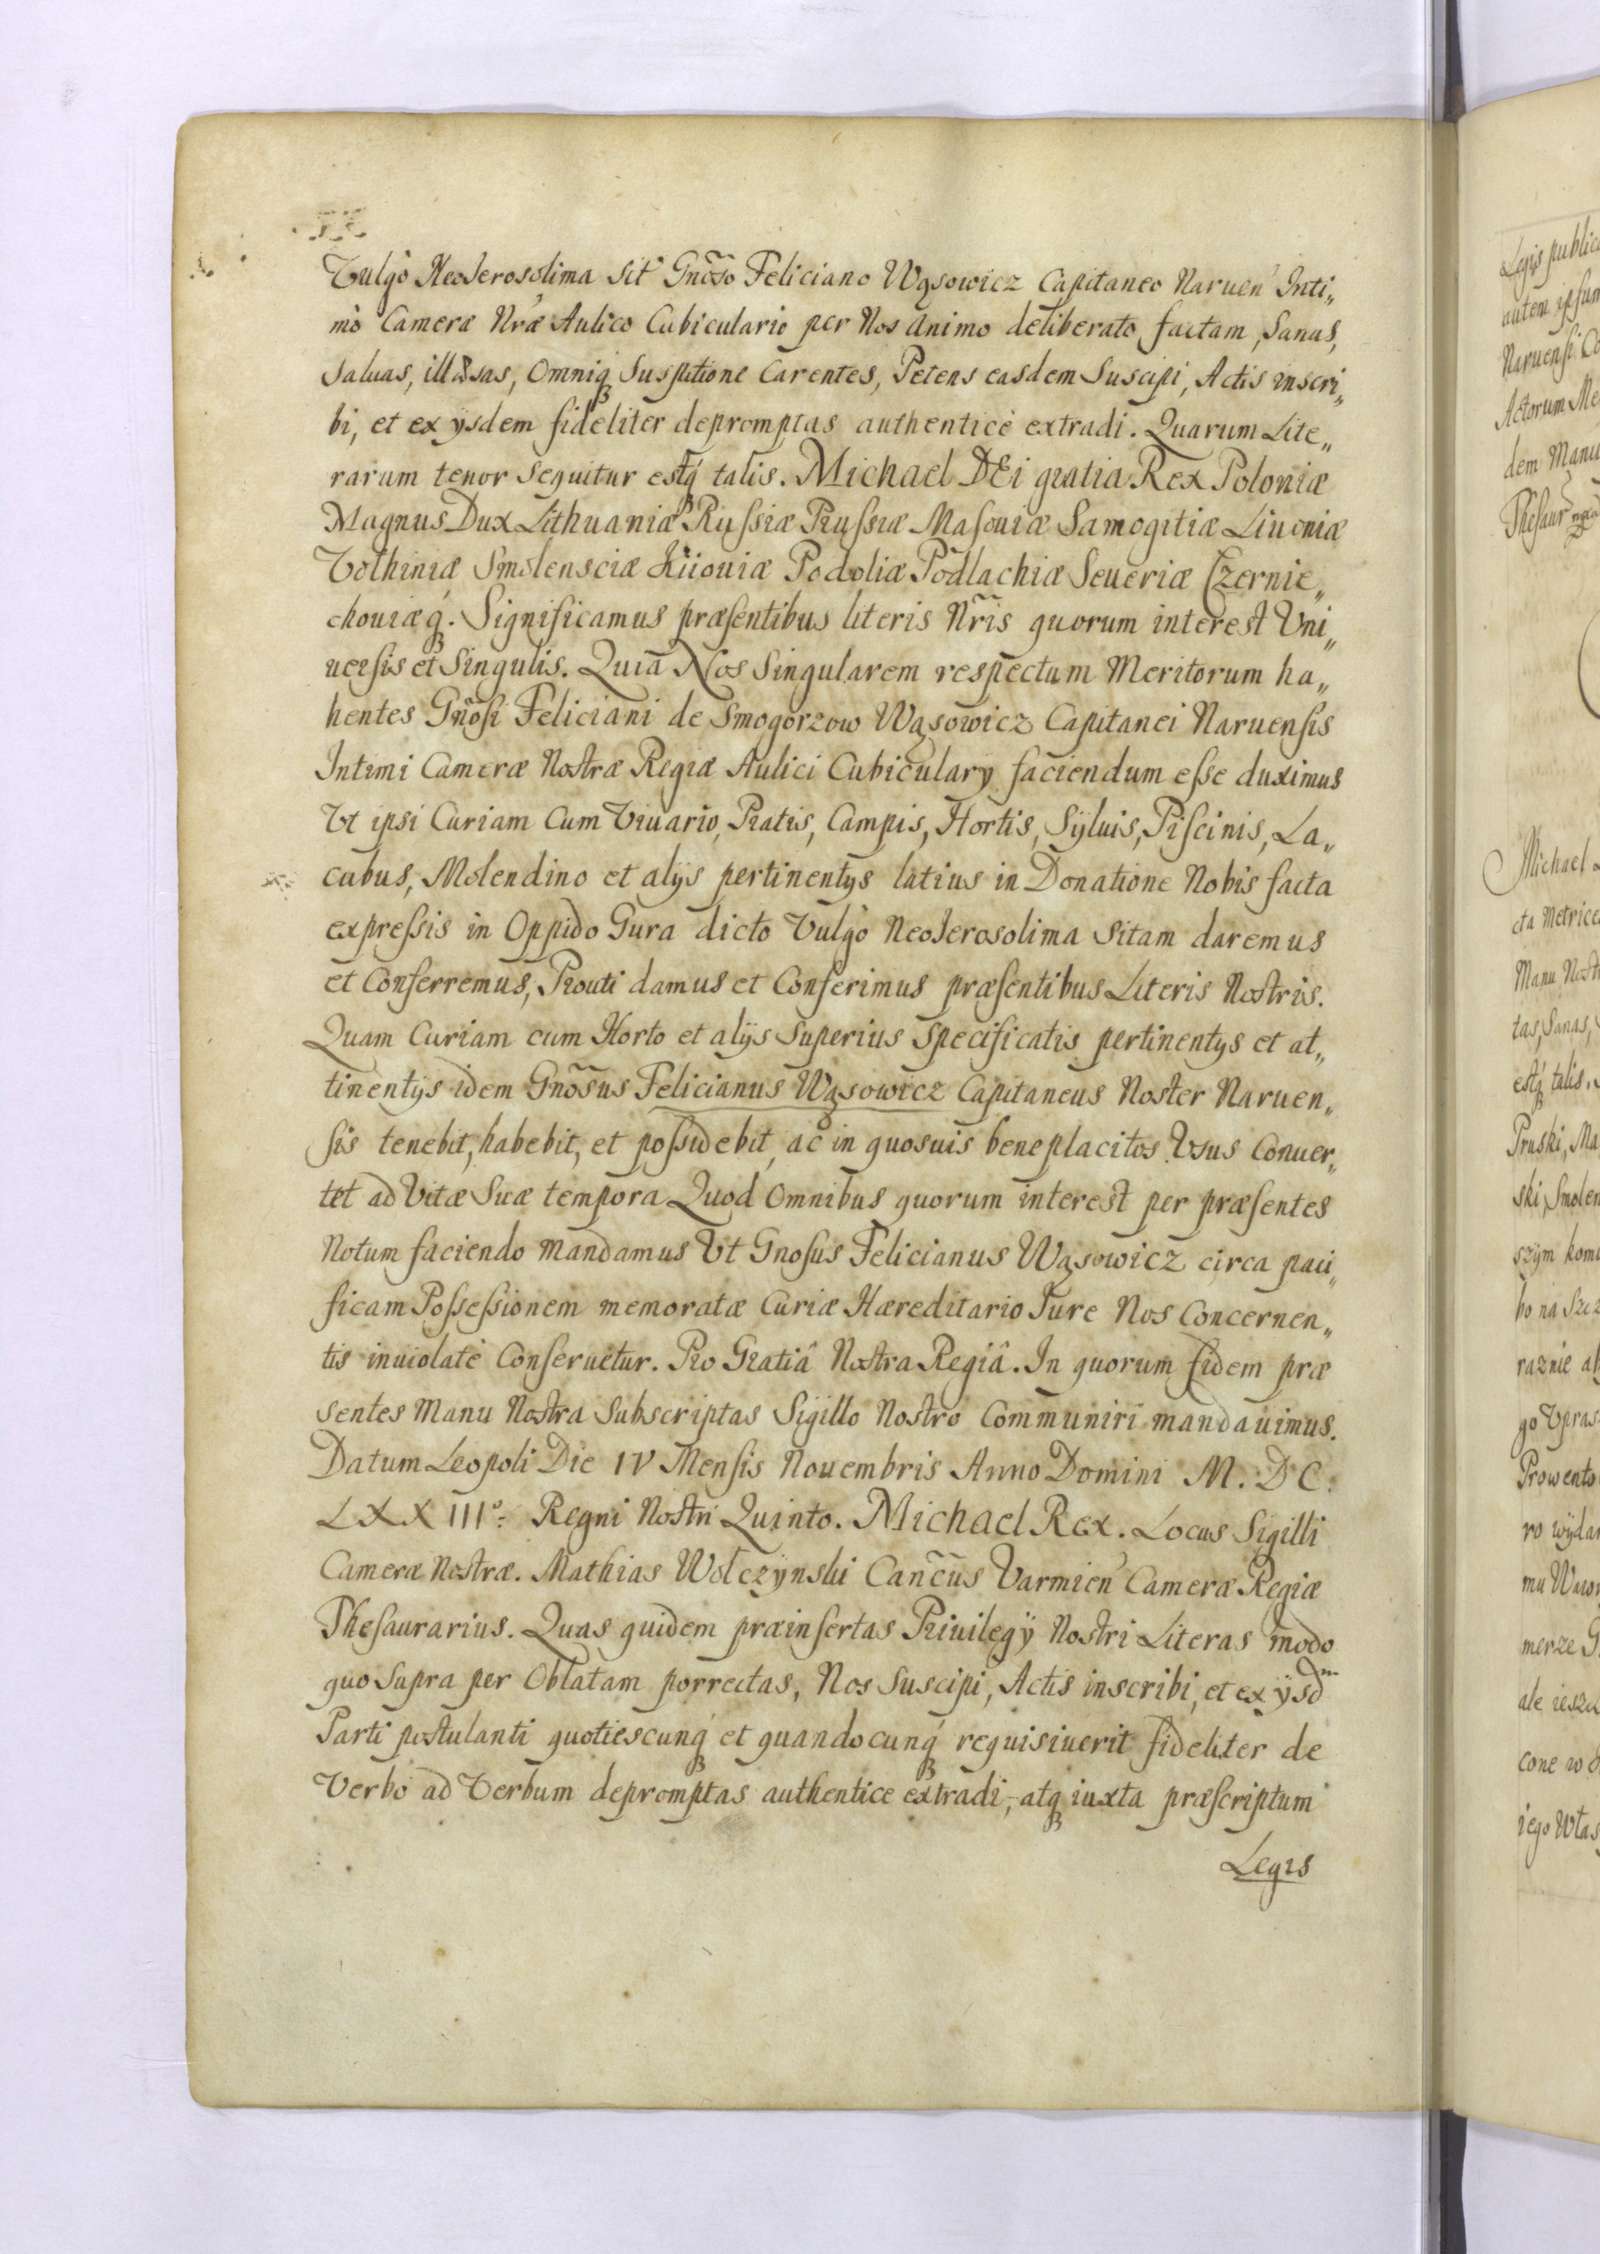 Vulgò NeoJerosolima sit' Gnõso Feliciano Wąsowicz Capitaneo Naruen' Inti„
mo Cameræ Nræ Aulico Cubiculario per Nos animo deliberato factam, Sanas,
saluas, illæsas, Omniq́ Suspitione Carentes, Petens easdem Suscipi, Actis inscri„
bi, et ex ijsdem fideliter depromptas authenticè extradi. Quarum Lite„
rarum tenor sequitur estq́ talis. Michael DEi gratia Rex Poloniæ
Magnus Dux Lithuaniæ Russiæ Prussiæ Masouiæ Samogitiæ Liuoniæ
Volhiniæ Smolensciæ Kiiouiæ Podoliæ Podlachiæ Seueriæ Czernie„
chouiæq́. Significamus præsentibus literis Nr̃is quorum interest Vni„
uersis et Singulis. Quia Nos Singularem respectum Meritorum ha„
bentes Gñosi Feliciani de Smogorzow Wąsowicz Capitanei Naruensis
Intimi Cameræ Nostræ Regiæ Aulici Cubiculary faciendum esse duximus
Vt ipsi Curiam Cum Viuario, Pratis, Campis, Hortis, Syluis, Piscinis, La„
cubus, Molendino et alijs pertinentys latius in Donatione Nobis facta
expressis in Oppido Gura dicto Vulgò NeoJerosolima Sitam daremus
et Conferremus, Prouti damus et Conferimus præsentibus Literis Nostris.
Quam Curiam cum Horto et alijs Superius Specificatis pertinentys et at„
tinentijs idem Gnõsus Felicianus Wąsowicz Capitaneus Noster Naruen„
sis tenebit, habebit, et possidebit, ac in quosuis beneplacitos Vsus Conuer„
tet ad Vitæ Suæ tempora Quod Omnibus quorum interest per præsentes
Notum faciendo mandamus Vt Gnosus Felicianus Wąsowicz circa paci„
ficam Possessionem memoratæ Curiæ Hæreditario Iure Nos Concernen„
tis inuiolatè Conseruetur. Pro Gratiâ Nostra Regiâ. In quorum fidem præ
sentes Manu Nostra Subscriptas Sigillo Nostro Communiri mandauimus.
Datum Leopoli Die IV Mensis Nouembris Anno Domini M. DC.
LXXIIIº. Regni Nostri Quinto. Michael Rex. Locus Sigilli
Cameræ Nostræ. Mathias Wołczynski Canc̃us Varmien' Cameræ Regiæ
Thesaurarius. Quas quidem præinsertas Priuilegÿ Nostri Literas modo
quo Supra per Oblatam porrectas, Nos Suscipi, Actis inscribi, et ex ysdm
Parti postulanti quotiescunq́ et quandocunq́ requisiuerit fideliter de
Verbo ad Verbum depromptas authentice extradi, atq́ iuxta præscriptum
Legis
Legis public
autem ipsum
Naruensi Co
Actorum Me
dem Manu
Thesaur
Michael
cta Metrice
Manu Nost
tas, Sanas,
estq́ talis.
Pruski, Ma
ski, Smolen
szym komu
bo na Szcz
raznie
go Vpras
Prowento
ro wyda
mu
merze G
ale iesz
cone w
iego Włas